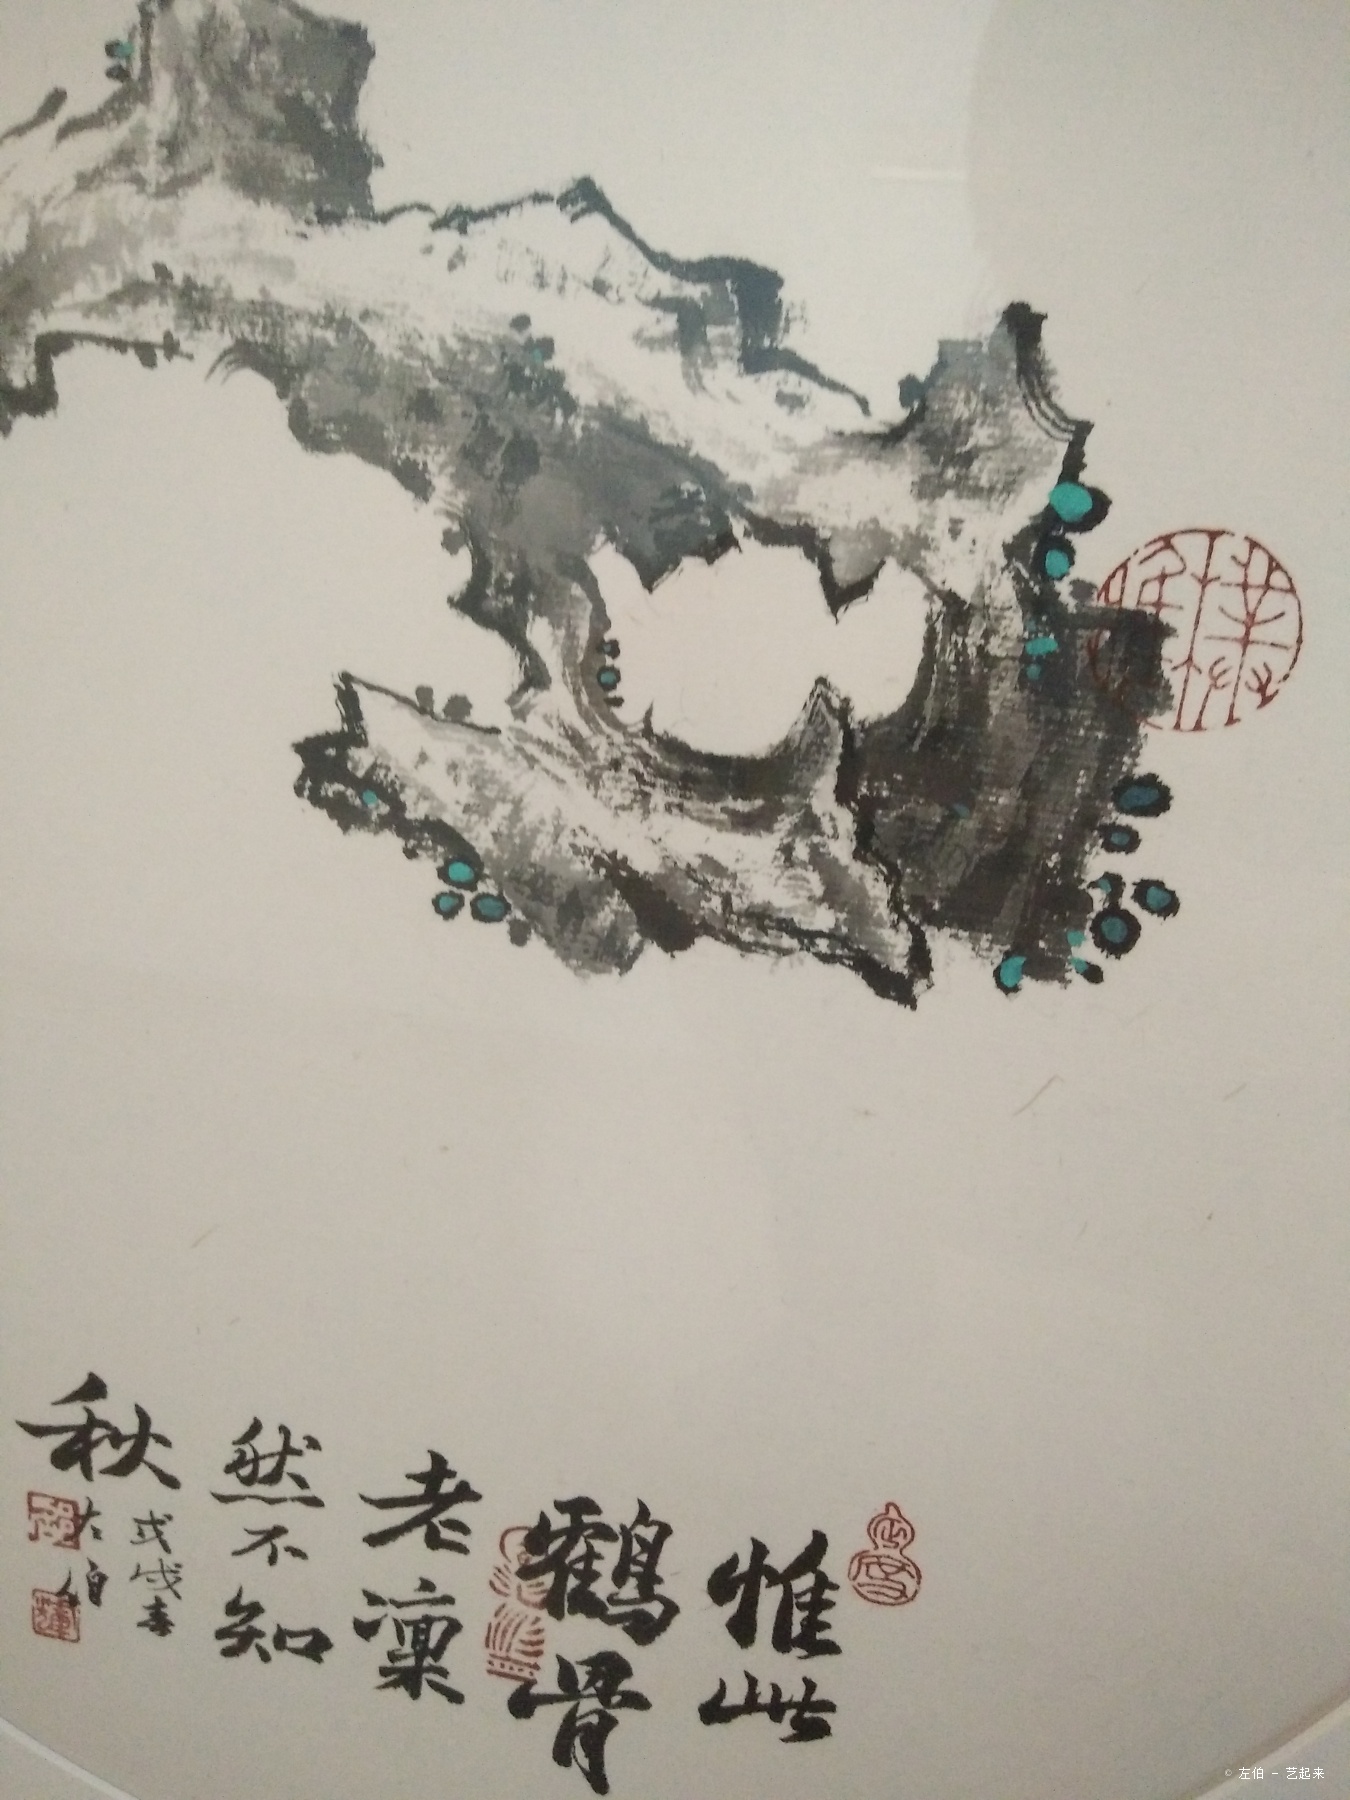 惟此
鹤骨
老凛
然不知
秋
戊戌春
左伯
© 左伯 - 艺起来